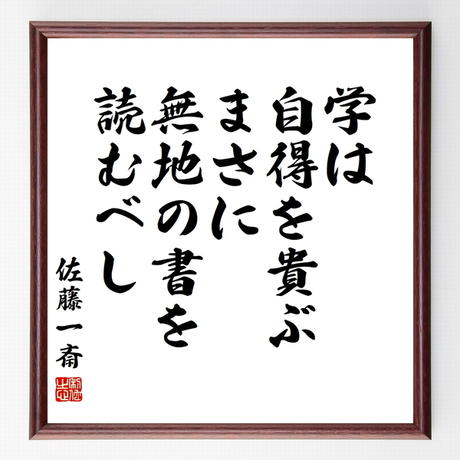 学は
自得を貴ぶ
まさに
無地の書を
読むべし
佐藤一斎